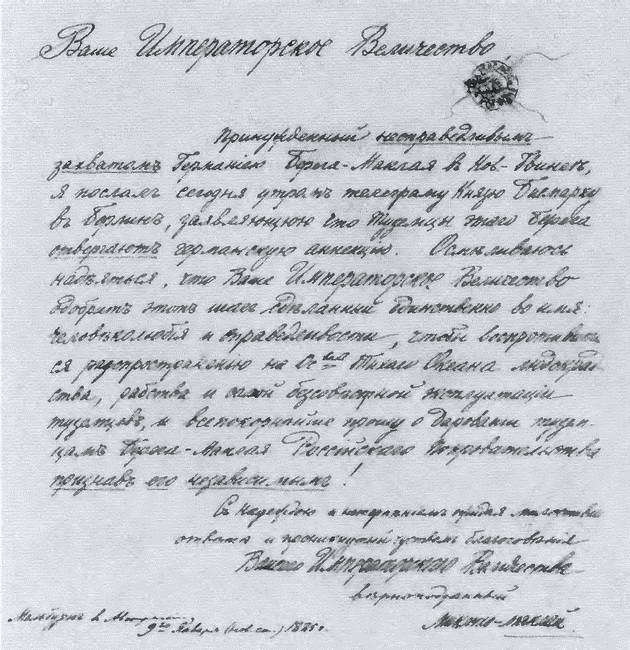 Ваше Императорское Величество,
Принужденный несправедливымъ
захватомъ Германіею Берега-Маклая в Нов-Гвинеѣ,
я послалъ сегодня утромъ телеграму Князю Бисмарку
въ Берлинъ, заявляющую что туземцы этого берега
отвергаютъ германскую аннекцію. Осмѣливаюсь
надѣяться, что Ваше Императорское Величество
одобритъ этотъ шагъ сдѣланный единственно во имя:
человѣколюбія и справедливости, чтобы воспротивить
ся распространенію на Ос-ва Тихаго Океана людокрад
ства, рабства и самой безсовѣстной эксплуатаціи
туземцевъ, и всепокорнѣйше прошу о дарованіи тузем-
цамъ Берега-Маклая Россійскаго покровительства
признавъ его независимымъ!
Съ надеждою и нетерпѣніемъ ожидая милостиваго
отвѣта и проникнутый чувствомъ благоговѣнія
Вашего Императорского Величества
вѣрноподданный
Миклухо-Маклай.
Мельбурнъ в Австраліи
9го Января (нов. ст.) 1885 г.